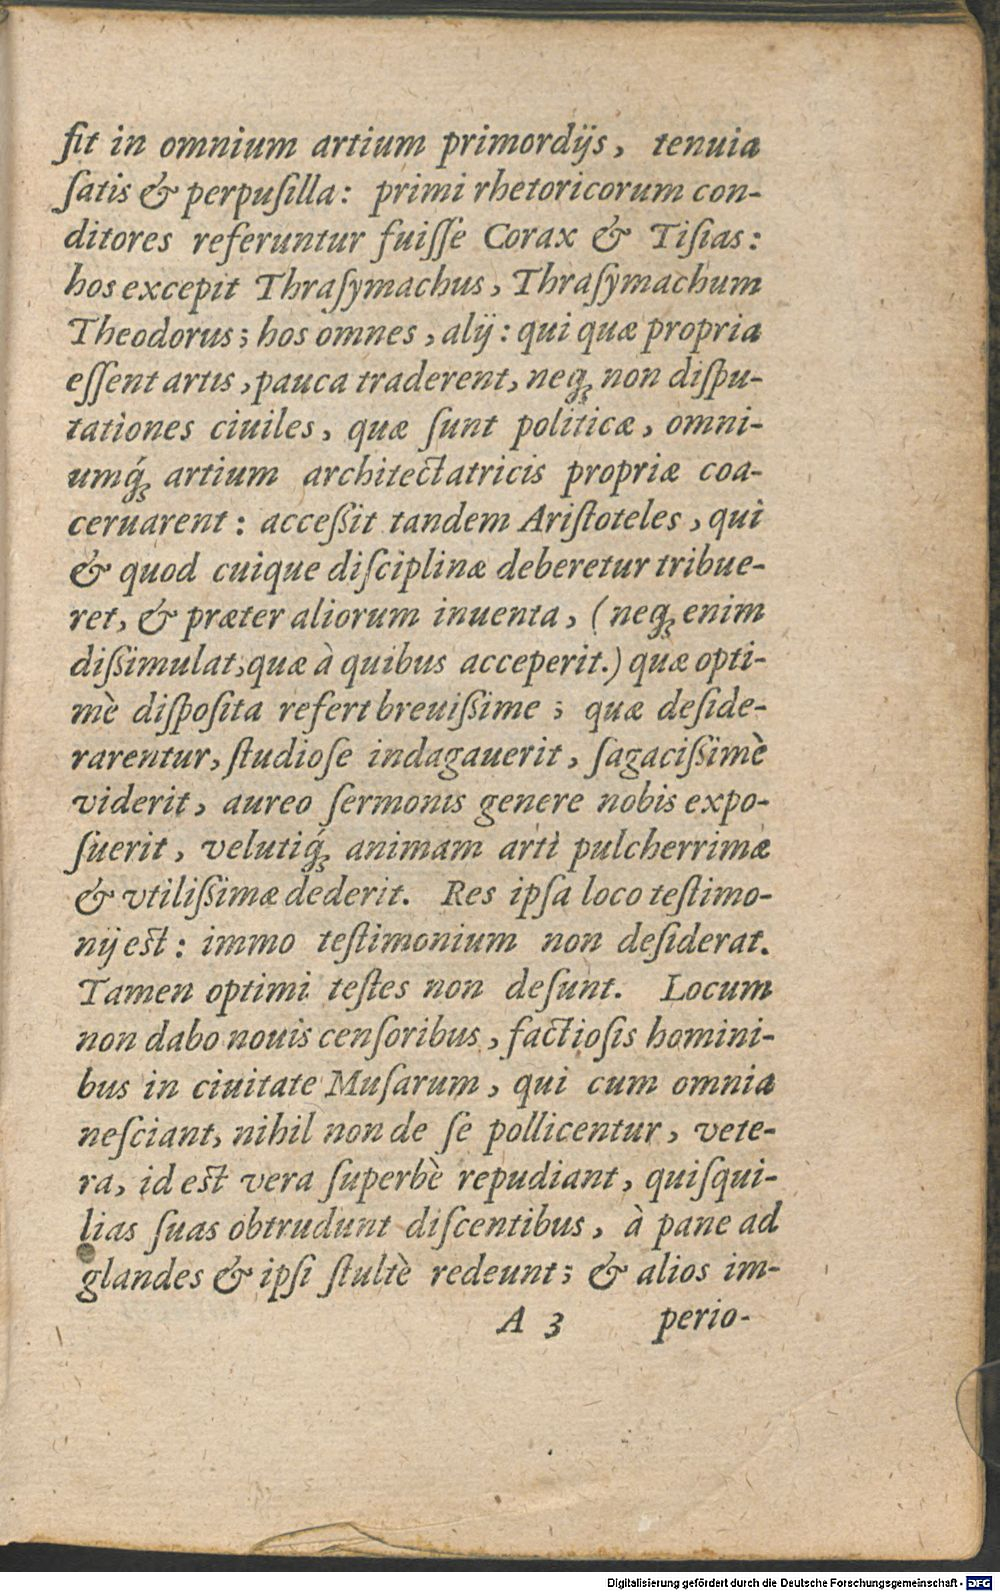 fit in omnium artium primordijs, tenuia
ſatis & perpuſilla: primi rhetoricorum con-
ditores referuntur fuiſſe Corax & Tiſias:
hos excepit Thraſymachus, Thraſymachum
Theodorus; hos omnes, alij: qui quæ propria
eſſent artis, pauca traderent, neqꝫ non diſpu-
tationes ciuiles, quæ ſunt politicæ, omni-
umq́ꝫ artium architectatricis propriæ coa-
ceruarent: acceßit tandem Ariſtoteles, qui
& quod cuique diſciplinæ deberetur tribue-
ret, & præter aliorum inuenta, (neqꝫ enim
dißimulat, quæ à quibus acceperit.) quæ opti-
mè diſpoſita refert breuißime; quæ deſide-
rarentur, ſtudioſe indagauerit, ſagacißimè
viderit, aureo ſermonis genere nobis expo-
ſuerit, velutiq́ꝫ animam arti pulcherrimæ
& vtilißimæ dederit. Res ipſa loco teſtimo-
nij est: immo teſtimonium non deſiderat.
Tamen optimi teſtes non deſunt. Locum
non dabo nouis cenſoribus, factioſis homini-
bus in ciuitate Muſarum, qui cum omnia
neſciant, nihil non de ſe pollicentur, vete-
ra, id est vera ſuperbè repudiant, quiſqui-
lias ſuas obtrudunt diſcentibus, à pane ad
glandes & ipſi ſtultè redeunt; & alios im-
A 3 perio-
Digitalisierung gefördert durch die Deutsche Forschungsgemeinschaft - DFG